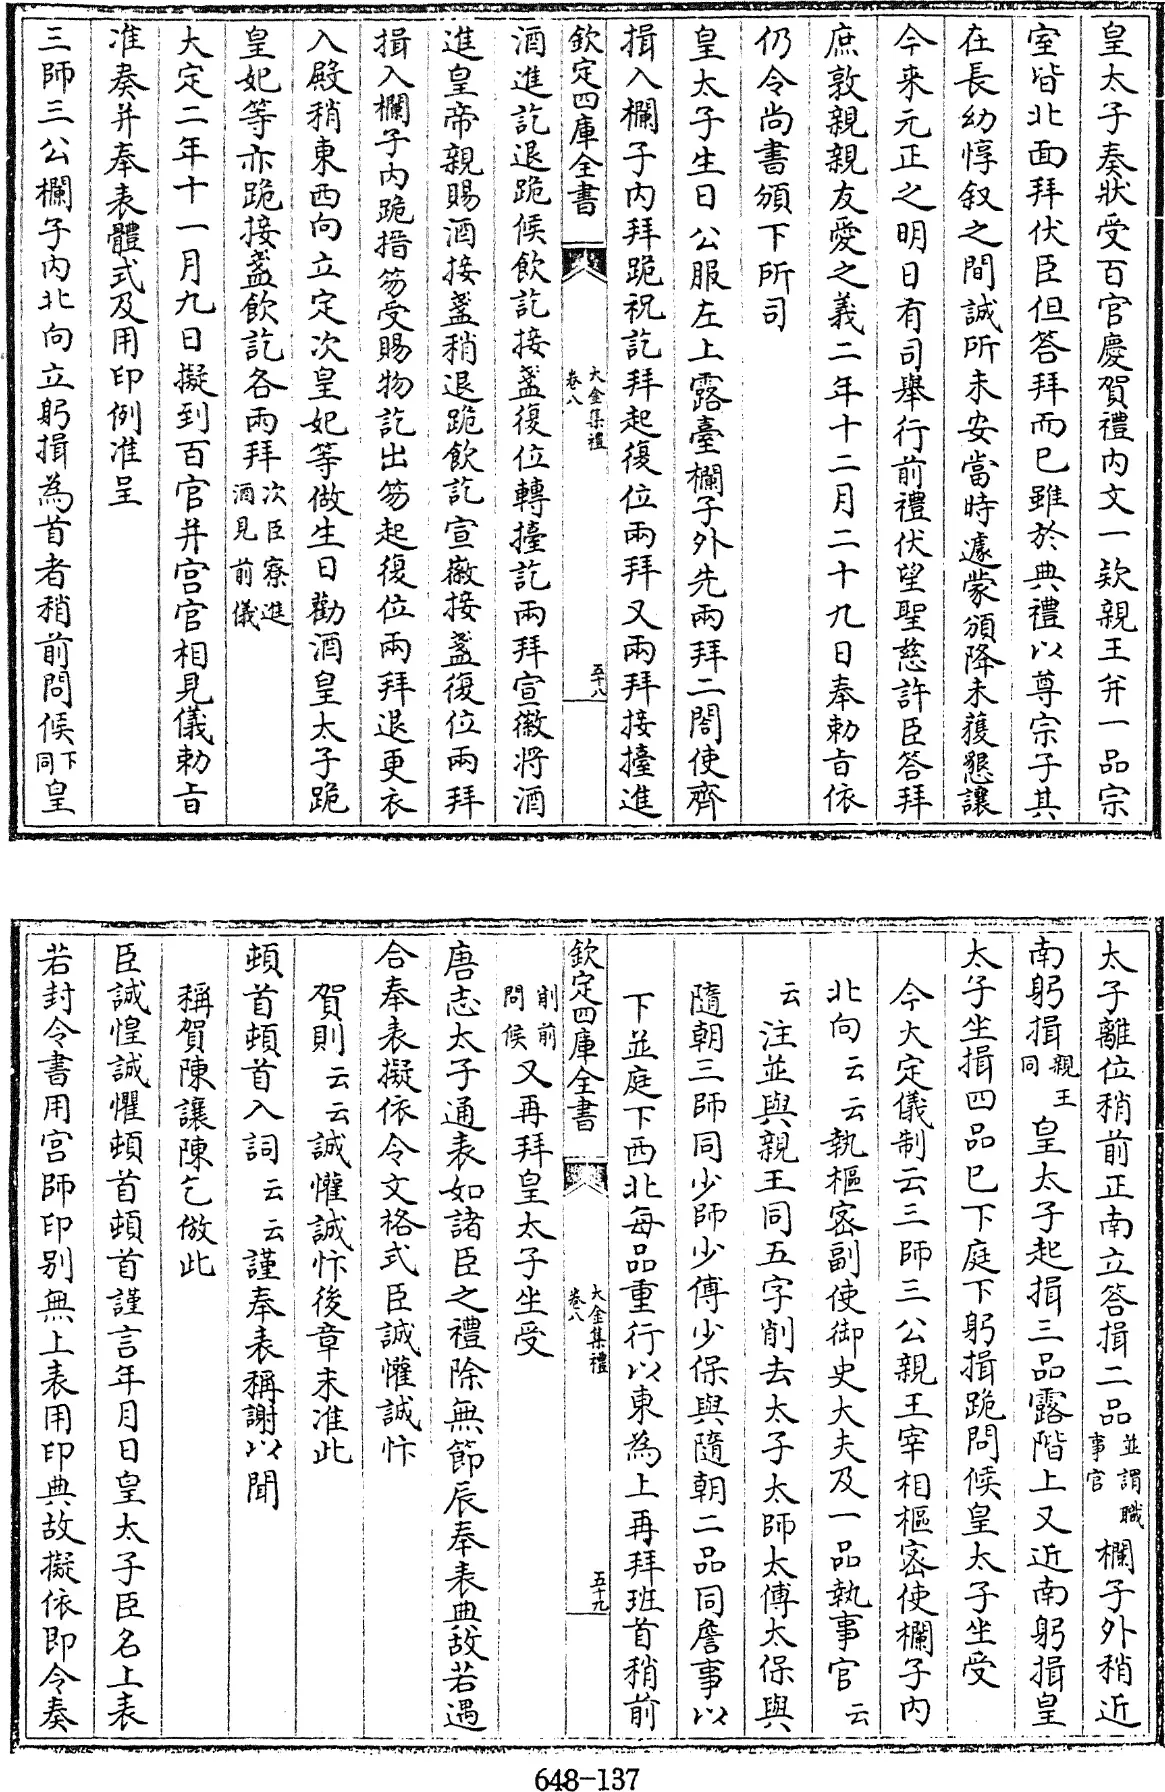 皇太子奏狀受百官慶賀禮内文一欵親王并一品宗
室皆北面拜伏臣但答拜而已雖於典禮以尊宗子其
在長幼惇叙之間誠所未安當時遽蒙頒降未獲懇讓
今来元正之明日有司舉行前禮伏望聖慈許臣答拜
庶敦親親友愛之義二年十二月二十九日奉勅旨依
仍令尚書頒下所司
皇太子生日公服左上露臺欄子外先兩拜二閤使齊
揖入欄子内拜跪祝訖拜起復位兩拜又兩拜接擡進
欽定四庫全書
大金集禮
卷八
五十八
酒進訖退跪候飲訖接盞復位轉擡訖兩拜宣徽将酒
進皇帝親賜酒接盞稍退跪飲訖宣徽接盞復位兩拜
揖入欄子内跪搢笏受賜物訖出笏起復位兩拜退更衣
入殿稍東西向立定次皇妃等做生日勸酒皇太子跪
皇妃等亦跪接盞飲訖各兩拜次臣寮進
酒見前儀
大定二年十一月九日擬到百官并宫官相見儀勅旨
准奏并奉表體式及用印例准呈
三師三公欄子内北向立躬揖為首者稍前問候下
同皇
太子離位稍前正南立答揖二品並謂職
事官欄子外稍近
南躬揖親王
同皇太子起揖三品露階上又近南躬揖皇
太子坐揖四品已下庭下躬揖跪問候皇太子坐受
今大定儀制云三師三公親王宰相樞宻使欄子内
北向云云執樞宻副使御史大夫及一品執事官云
云注並與親王同五字削去太子太師太傅太保與
隨朝三師同少師少傅少保與隨朝二品同詹事以
下並庭下西北每品重行以東為上再拜班首稍前
欽定四庫全書
大金集禮
卷八
五十九
削前
問候又再拜皇太子坐受
唐志太子通表如諸臣之禮除無節辰奉表典故若遇
合奉表擬依令文格式臣誠懽誠忭
賀則云云誠懽誠忭後章末准此
頓首頓首入詞云云謹奉表稱謝以聞
稱賀陳讓陳乞倣此
臣誠惶誠懼頓首頓首謹言年月日皇太子臣名上表
若封令書用宫師印别無上表用印典故擬依即令奏
648-137